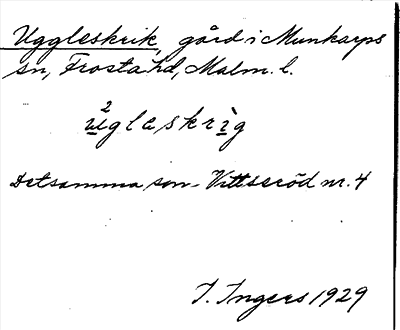 Uggleskrik, gård i Munkarps
sn, Frosta hd, Malm. l.
2
ug̀laskrìg
Detsamma som Vittseröd nr. 4
I. Ingers 1929